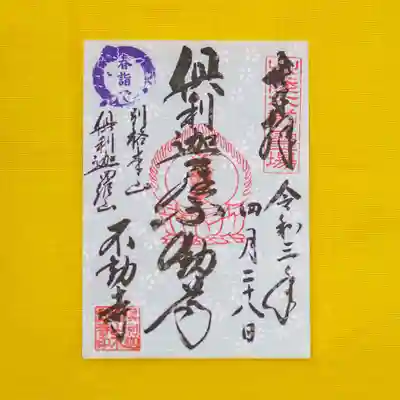 奉拝
令和三年
四月二十八日
倶利迦羅不動尊
春詣で
別格本山
倶利迦羅山
不動寺